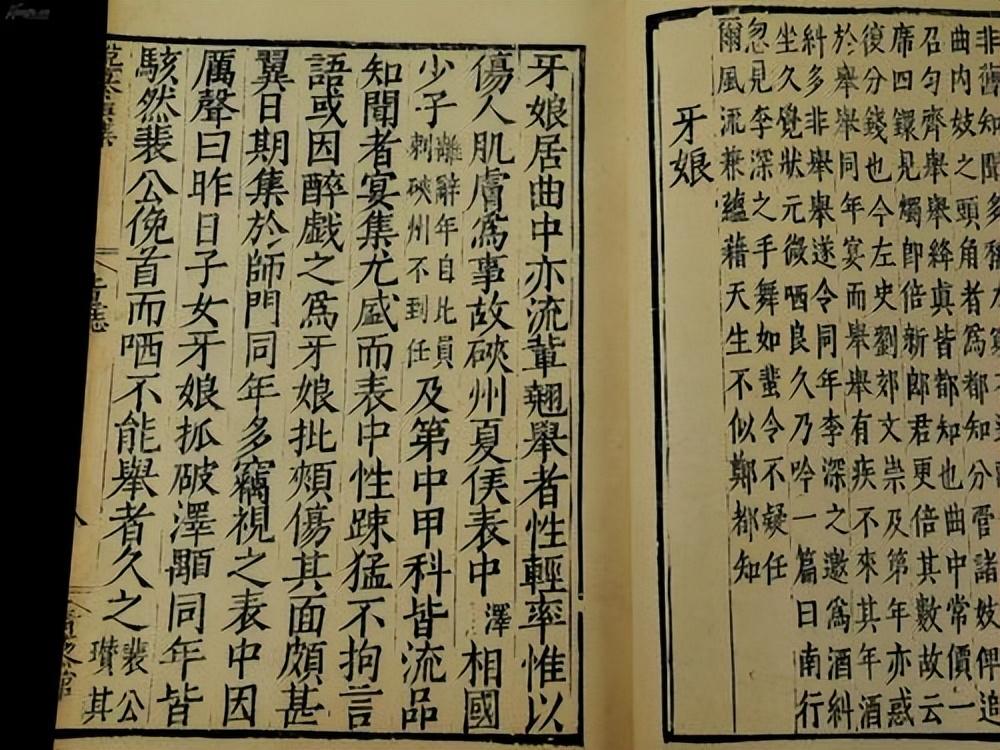 非舊知聞多
曲内妓之頭角者爲都知分管諸妓俾追
召匀齊舉舉絳眞皆都知也曲中常價一
席四鐶見燭即倍新郎君更倍其數故云
復分錢也今左史劉郊文崇及第年亦惑
於舉舉同年宴而舉舉有疾不來其年酒
糾多非舉舉遂令同年李深之邀爲酒糾
坐久覺狀元微哂良久乃吟一篇曰南行
忽見李深之手舞如蜚令不疑任
爾風流兼蘊藉天生不似鄭都知
牙娘
牙娘居曲中亦流輩翹舉者性輕率惟以
傷人肌膚爲事故硤州夏侯表中澤相國
少子離辭年自比員刺硤州不到任及第中甲科皆流品
知聞者宴集尤盛而表中性踈猛不拘言
語或因醉戲之爲牙娘批頰傷其面頗甚
翼日期集於師門同年多竊視之表中因
厲聲曰昨日子女牙娘抓破澤顋同年皆
駭然裴公俛首而哂不能舉者久之裴公瓚其